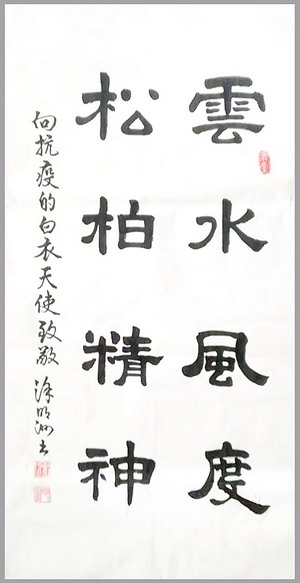 雲水風度
松柏精神
向抗疫的白衣天使致敬 涂明洲书